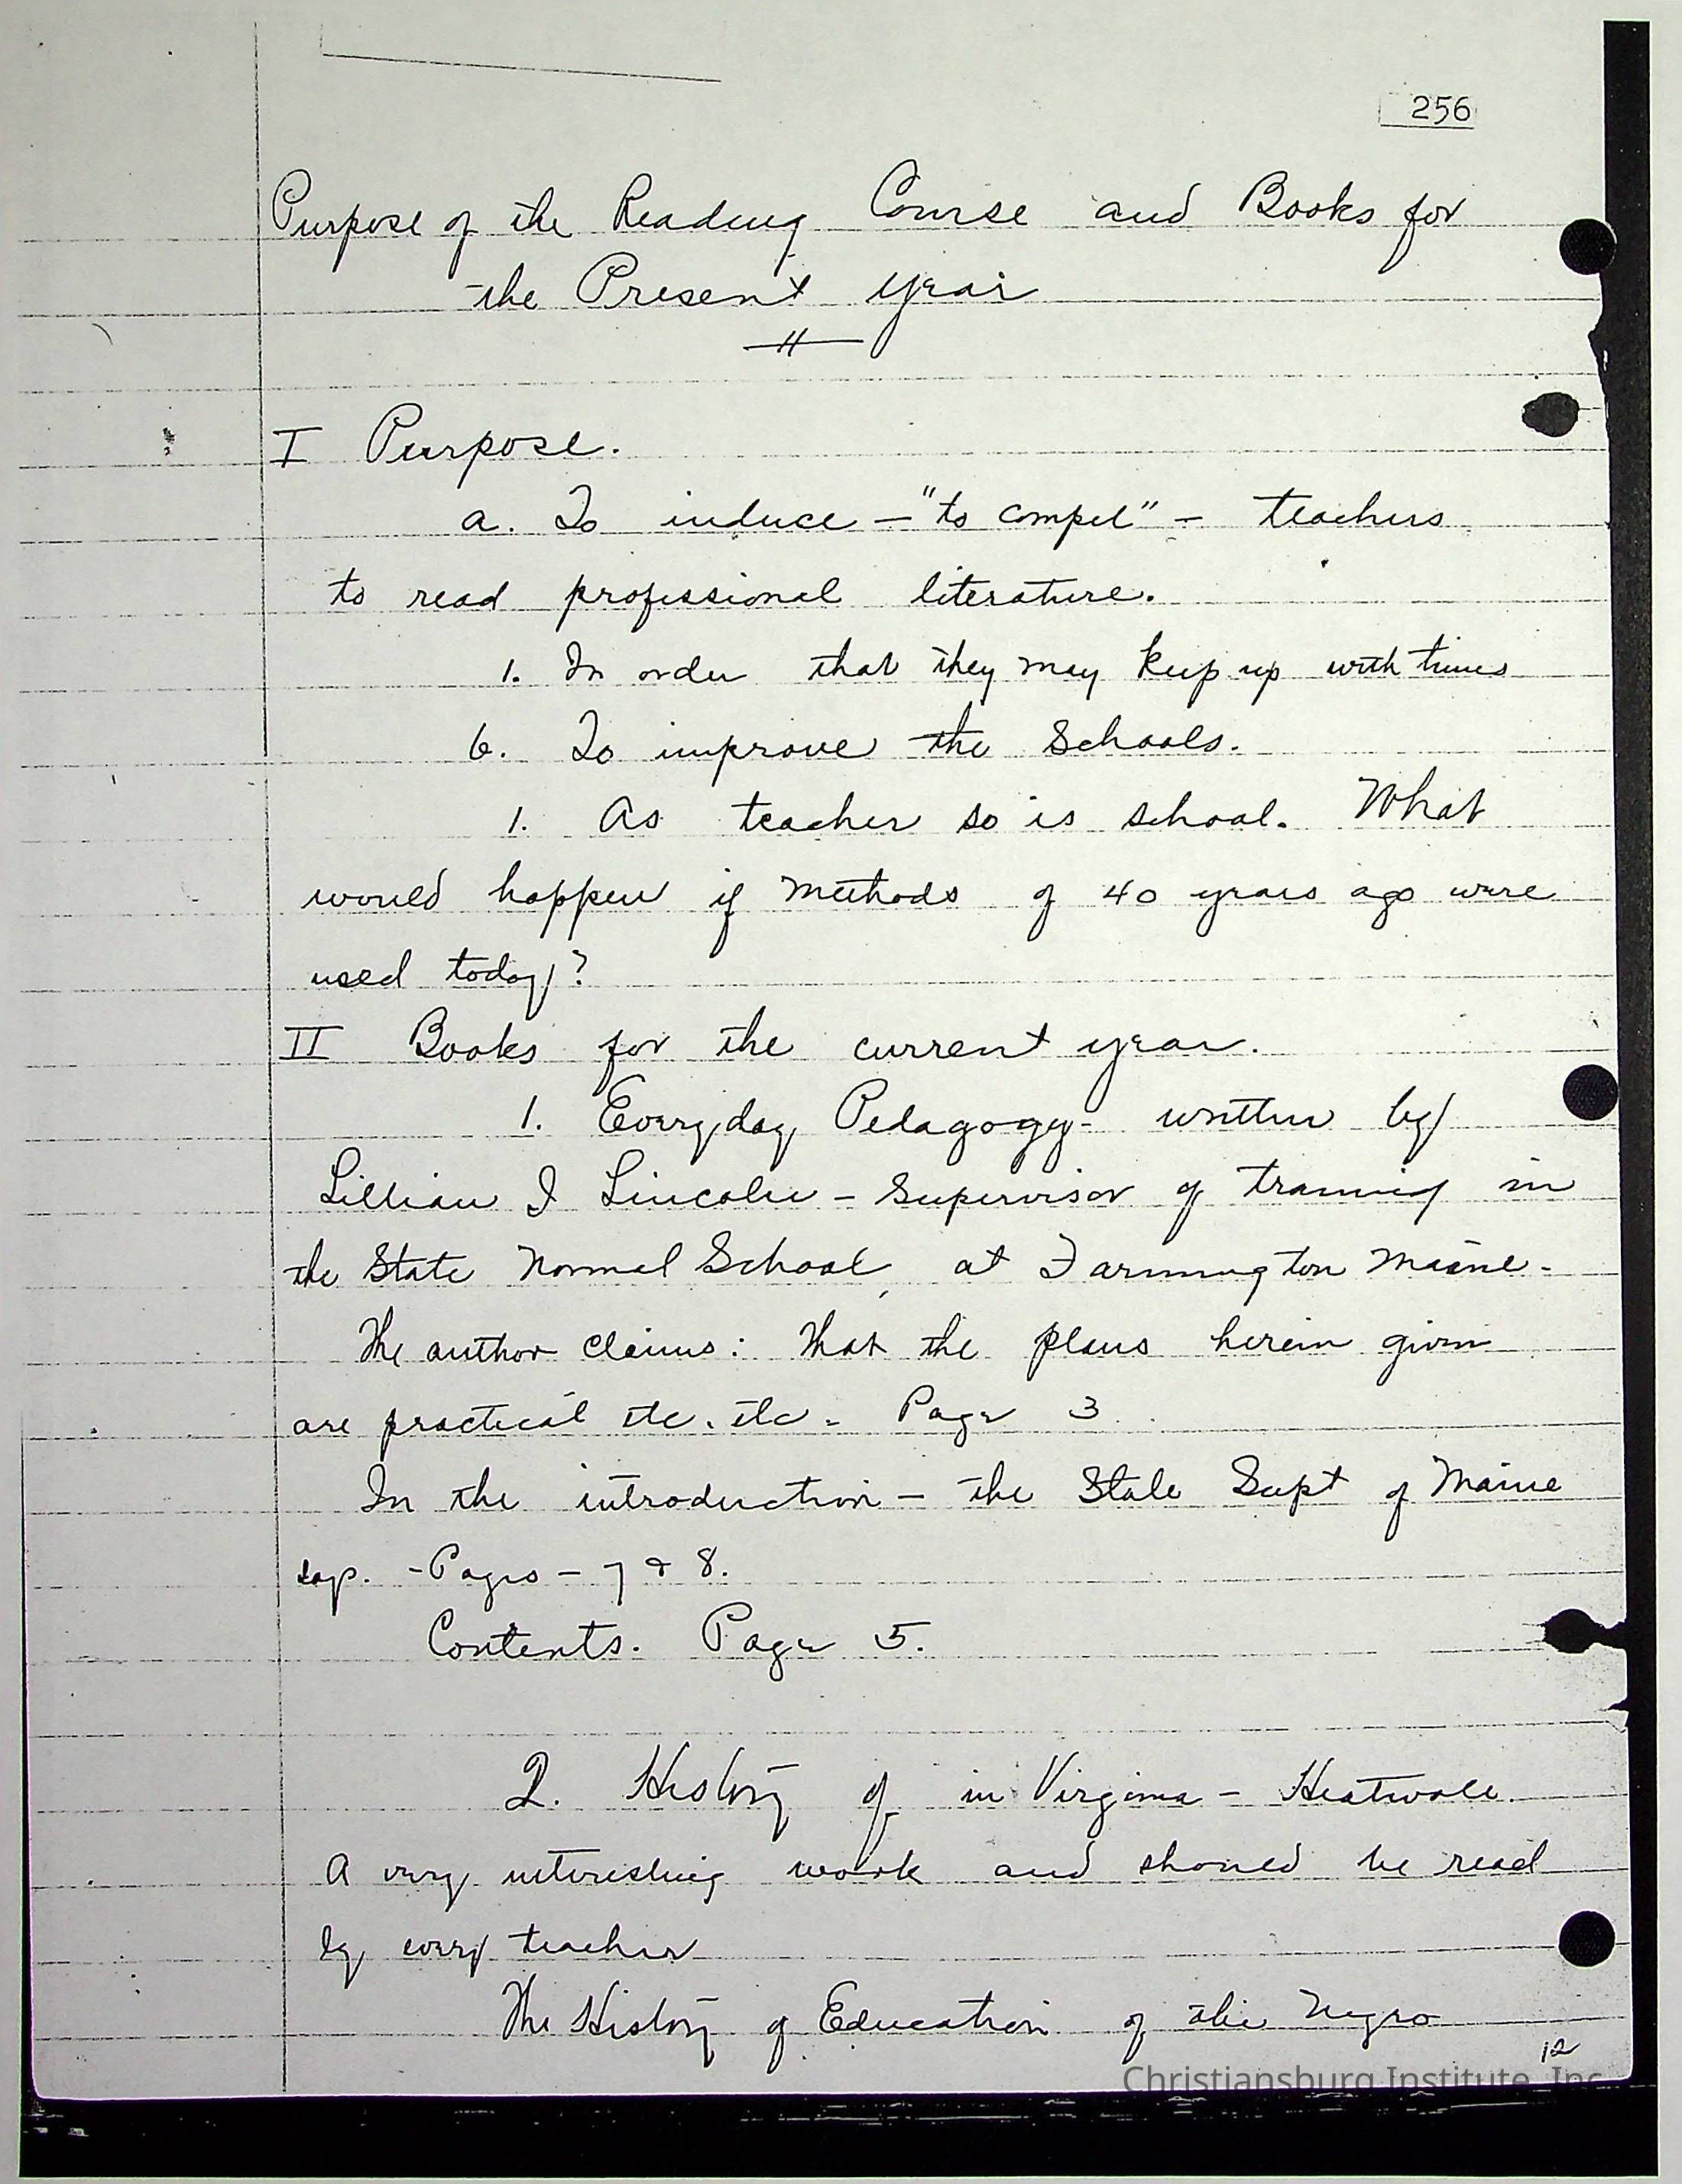 256
Purpose of the Reading Course and Books for
the Present year
I Purpose.
a. To induce – "to compel" – teachers
to read professional literature.
1. In order that they may keep up with times
b. To improve the Schools.
1. As teacher so is school. What
would happen if methods of 40 years ago were
used today?
II Books for the current year.
1. Everyday Pedagogy - written by
Lillian I Lincoln – Supervisor of training in
the State Normal School, at Farmington Maine -
The author claims: that the plans herein given
are practical etc. etc - Page 3
In the introduction – the State Supt of Maine
says. - Pages – 7 & 8.
Contents. Page 5.
2. History of in Virginia – Heatwole.
A very interesting work and should be read
by every teacher
The History of Education of the Negro
12
Christiansburg Institute, Inc.